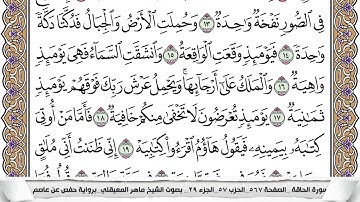 فِى ٱلصُّورِ نَفْخَةٌ وَٰحِدَةٌ ١٣ وَحُمِلَتِ ٱلْأَرْضُ وَٱلْجِبَالُ فَدُكَّتَا دَكَّةً
وَٰحِدَةً ١٤ فَيَوْمَئِذٍ وَقَعَتِ ٱلْوَاقِعَةُ ١٥ وَٱنشَقَّتِ ٱلسَّمَآءُ فَهِىَ يَوْمَئِذٍ
وَاهِيَةٌ ١٦ وَٱلْمَلَكُ عَلَىٰٓ أَرْجَآئِهَا ۚ وَيَحْمِلُ عَرْشَ رَبِّكَ فَوْقَهُمْ يَوْمَئِذٍ
ثَمَٰنِيَةٌ ١٧ يَوْمَئِذٍ تُعْرَضُونَ لَا تَخْفَىٰ مِنكُمْ خَافِيَةٌ ١٨ فَأَمَّا مَنْ أُوتِىَ
كِتَٰبَهُۥ بِيَمِينِهِۦ فَيَقُولُ هَآؤُمُ ٱقْرَءُوا۟ كِتَٰبِيَهْ ١٩ إِنِّى ظَنَنتُ أَنِّى مُلَٰقٍ
سورة الحاقة _ الصفحة ٥٦٧ _ الحزب ٥٧ _ الجزء ٢٩ _ بصوت الشيخ ماهر المعيقلي _ برواية حفص عن عاصم